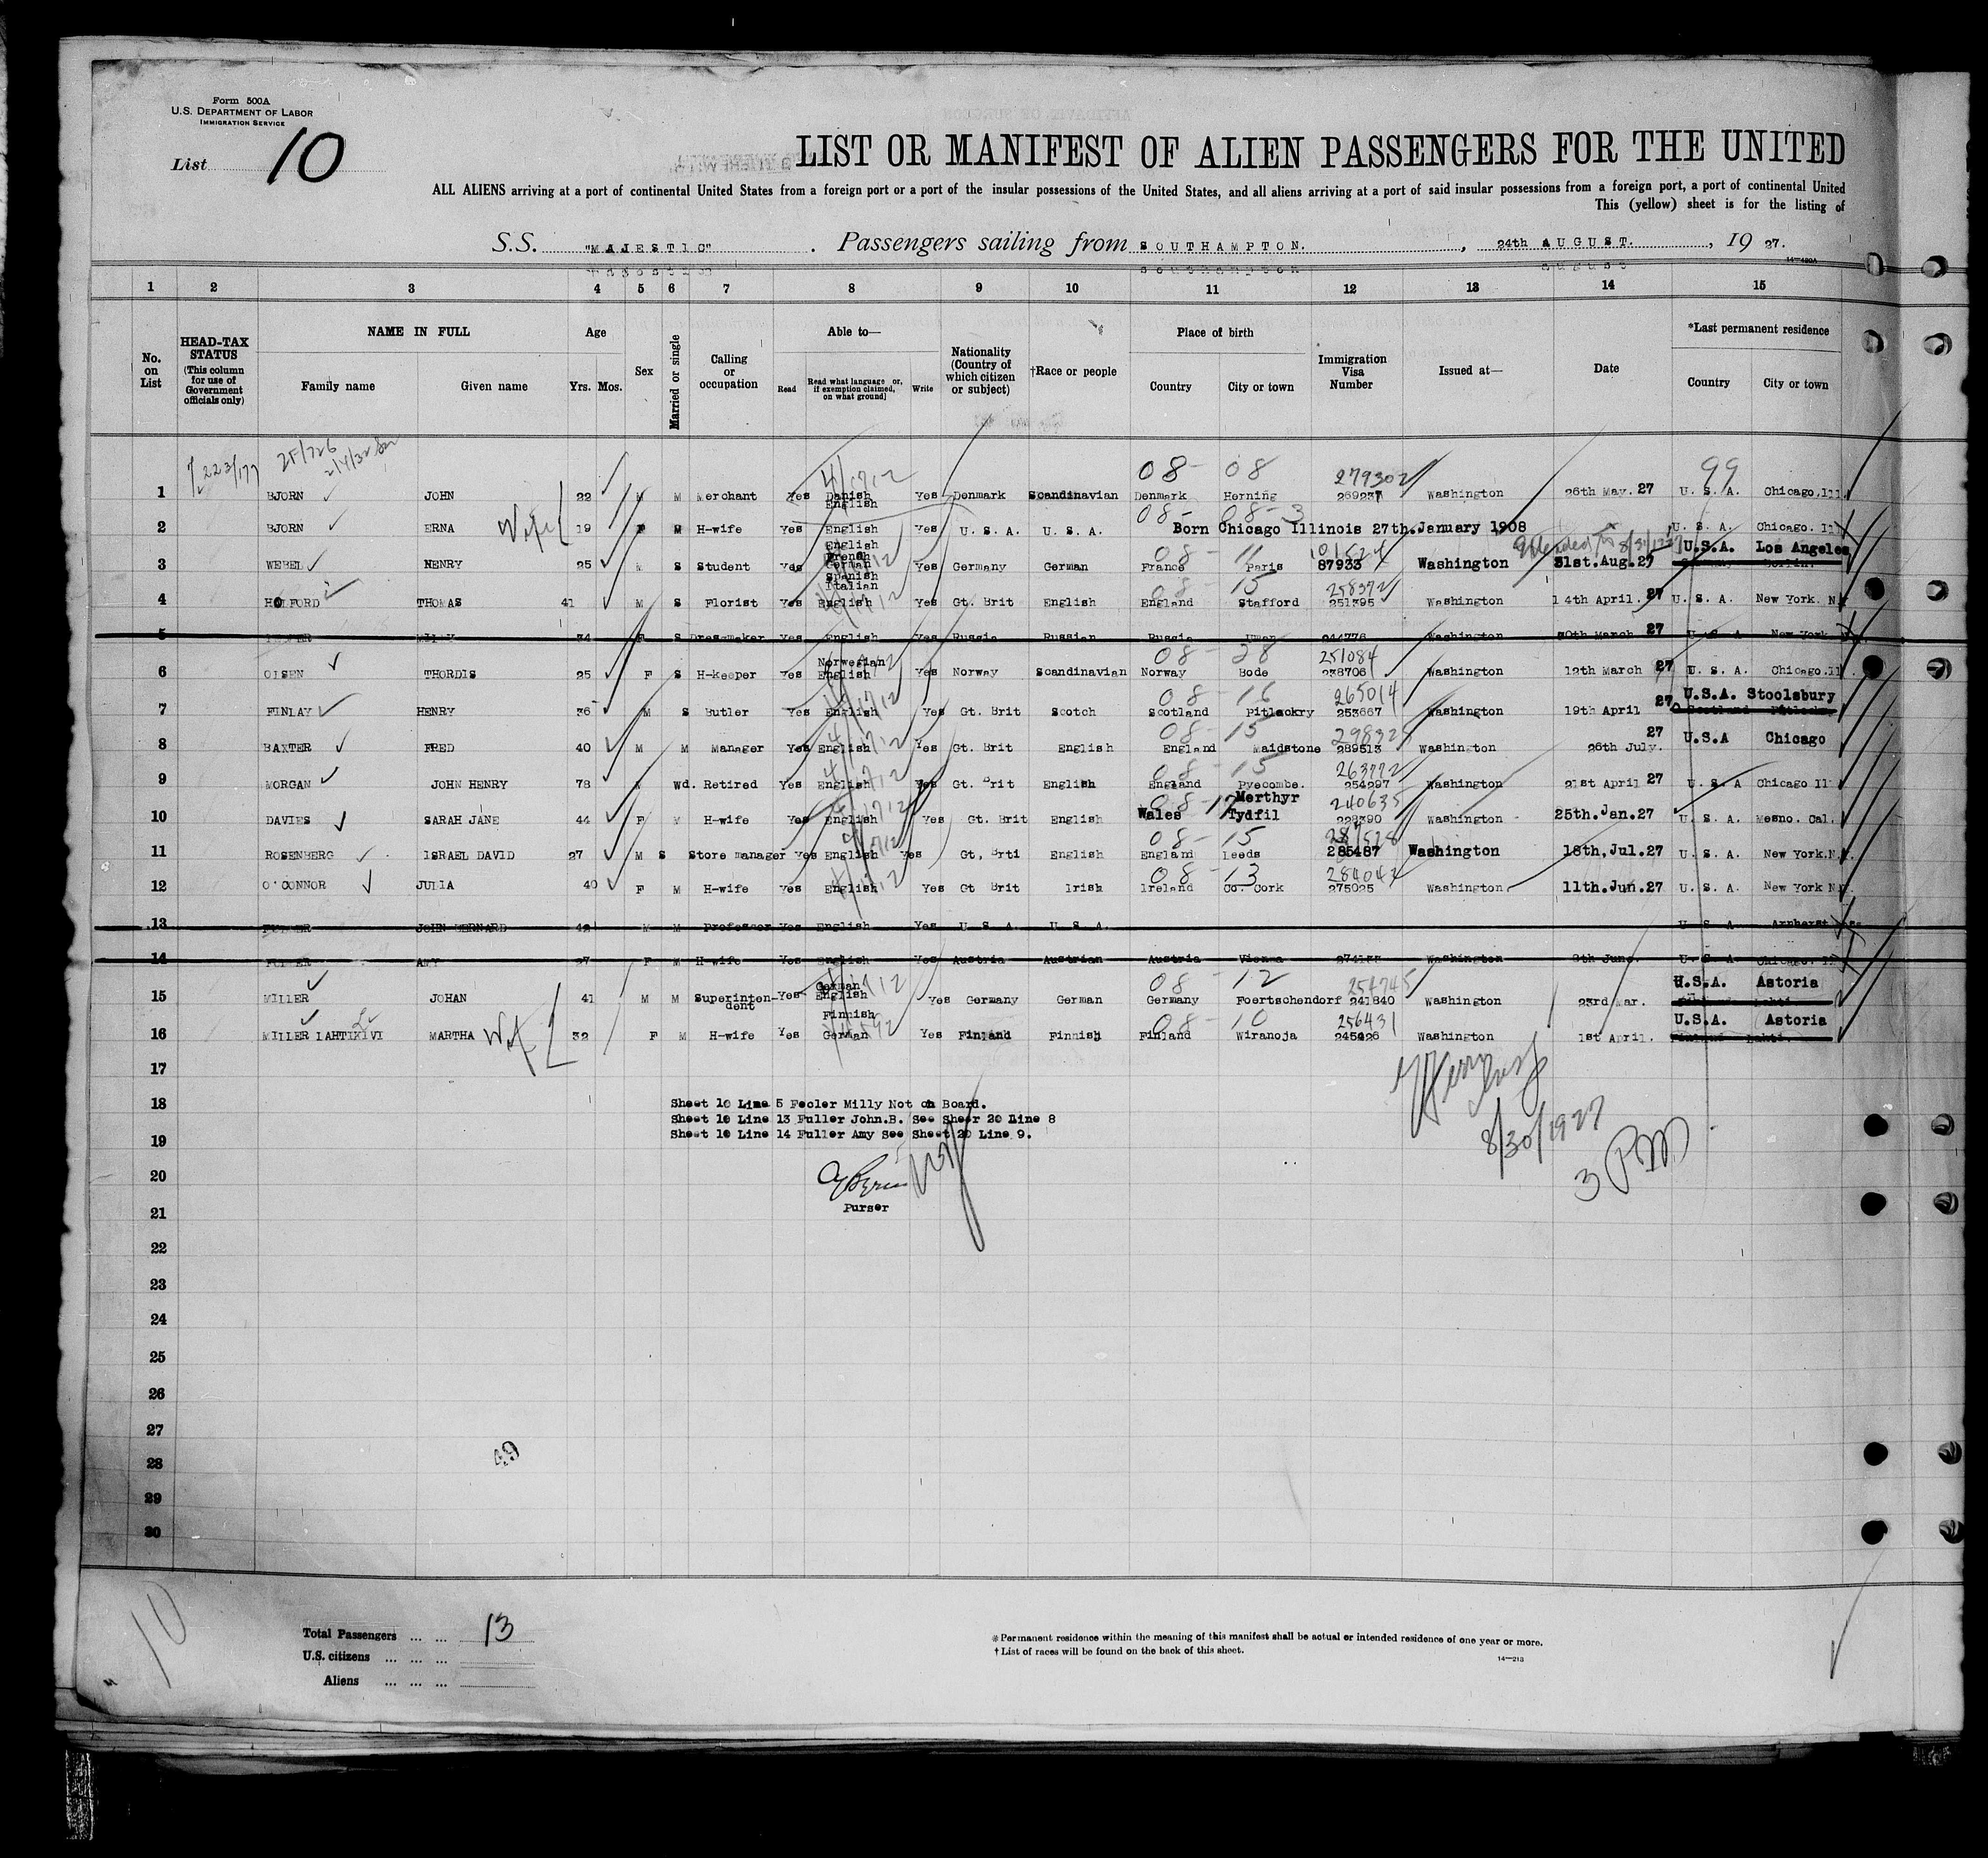 Form 500A
U.S. DEPARTMENT OF LABOR
IMMIGRATION SERVICE
List 10
LIST OR MANIFEST OF ALIEN PASSENGERS FOR THE UNITED
ALL ALIENS arriving at a port of continental United States from a foreign port or a port of the insular possessions of the United States, and all aliens arriving at a port of said insular possessions from a foreign port, a port of continental United
This (yellow) sheet is for the listing of
S.S. "MAJESTIC" . Passengers sailing from SOUTHAMPTON. , 24th AUGUST. , 19 27.
14—480A
1 2 3 4 5 6 7 8 9 10 11 12 13 14 15
No. on List
HEAD-TAX STATUS (This column for use of Government officials only)
NAME IN FULL Family name Given name
Age Yrs. Mos.
Sex
Married or single
Calling or occupation
Able to— Read Read what language or, if exemption claimed, on what ground) Write
Nationality (Country of which citizen or subject)
†Race or people
Place of birth Country City or town
Immigration Visa Number
Issued at—
Date
*Last permanent residence Country City or town
08- 08 279302 99
1 BJORN JOHN 22 M M Merchant Yes Danish English Yes Denmark Scandinavian Denmark Herning 269237 Washington 26th May. 27 U. S. A. Chicago.Ill.
08- 08-3
2 BJORN ERNA Wife 19 F M H-wife Yes English Yes U. S. A. U. S. A. Born Chicago Illinois 27th.January 1908 U. S. A. Chicago. Ill
08- 11 101524 Extended to 8/31/1927
3 WEBEL HENRY 25 M S Student Yes English French German Spanish Italian Yes Germany German France Paris 87933 Washington 31st.Aug.27 U.S.A. Los Angeles
08- 15 258372
4 HOLFORD THOMAS 41 M S Florist Yes English Yes Gt. Brit English England Stafford 251395 Washington 14th April. 27 U. S. A. New York. N.Y
5 34 F S Dressmaker Yes English Yes Russia Russian Russia Uman 244776 Washington 30th March 27 U. S. A New York
08- 28 251084
6 OLSEN THORDIS 25 F S H-keeper Yes Norwegian English Yes Norway Scandinavian Norway Bode 238706 Washington 12th March 27 U. S. A. Chicago.Ill.
08- 16 265014
7 FINLAY HENRY 36 M S Butler Yes English Yes Gt. Brit Scotch Scotland Pitlockry 253667 Washington 19th April 27 U.S.A. Stoolsbury
08- 15
8 BAXTER FRED 40 M M Manager Yes English Yes Gt. Brit English England Maidstone 289513 Washington 26th July. 27 U.S.A Chicago
08- 15 263772
9 MORGAN JOHN HENRY 78 M Wd. Retired Yes English Yes Gt. Brit English England Pyecombe. 254297 Washington 21st April 27 U. S. A Chicago Ill
08- 17 240635
10 DAVIES SARAH JANE 44 F M H-wife Yes English Yes Gt. Brit English Wales Merthyr Tydfil 228390 Washington 25th.Jan.27 U. S. A. Mesno. Cal.
08- 15
11 ROSENBERG ISRAEL DAVID 27 M S Store manager Yes English Yes Gt, Brti English England Leeds 285487 Washington 18th.Jul.27 U. S. A. New York.N.Y.
08- 13 284042
12 O'CONNOR JULIA 40 F M H-wife Yes English Yes Gt Brit Irish Ireland Co. Cork 275025 Washington 11th.Jun.27 U. S. A. New York N.Y.
13 FULLER JOHN BERNARD 42 M M Professor Yes English Yes U. S. A. U. S. A. U. S. A. Amherst
14 FULLER AMY 27 F M H-wife Yes English Yes Austria Austrian Austria Vienna Washington 8th June. U. S. A. Chicago.
08- 12 254745
15 MILLER JOHAN 41 M M Superinten-dent Yes German English Yes Germany German Germany Foertschendorf 241840 Washington 23rd Mar. U.S.A. Astoria
08- 10 256431
16 MILLER LAHTIKIVI MARTHA Wife 32 F M H-wife Yes Finnish German Yes Finland Finnish Finland Wiranoja 245426 Washington 1st April. U.S.A. Astoria
17
18 Sheet 10 Line 5 Fecler Milly Not on Board.
Sheet 10 Line 13 Fuller John.B. See Sheer 20 Line 8
19 Sheet 10 Line 14 Fuller Amy See Sheet 20 Line 9.
8/30/1927
3 PM
20
Purser
21
22
23
24
25
26
27
28
29
30
49
10
Total Passengers ... ... 13
U.S. citizens ... ... ...
Aliens ... ... ...
*Permanent residence within the meaning of this manifest shall be actual or intended residence of one year or more.
†List of races will be found on the back of this sheet.
14—213